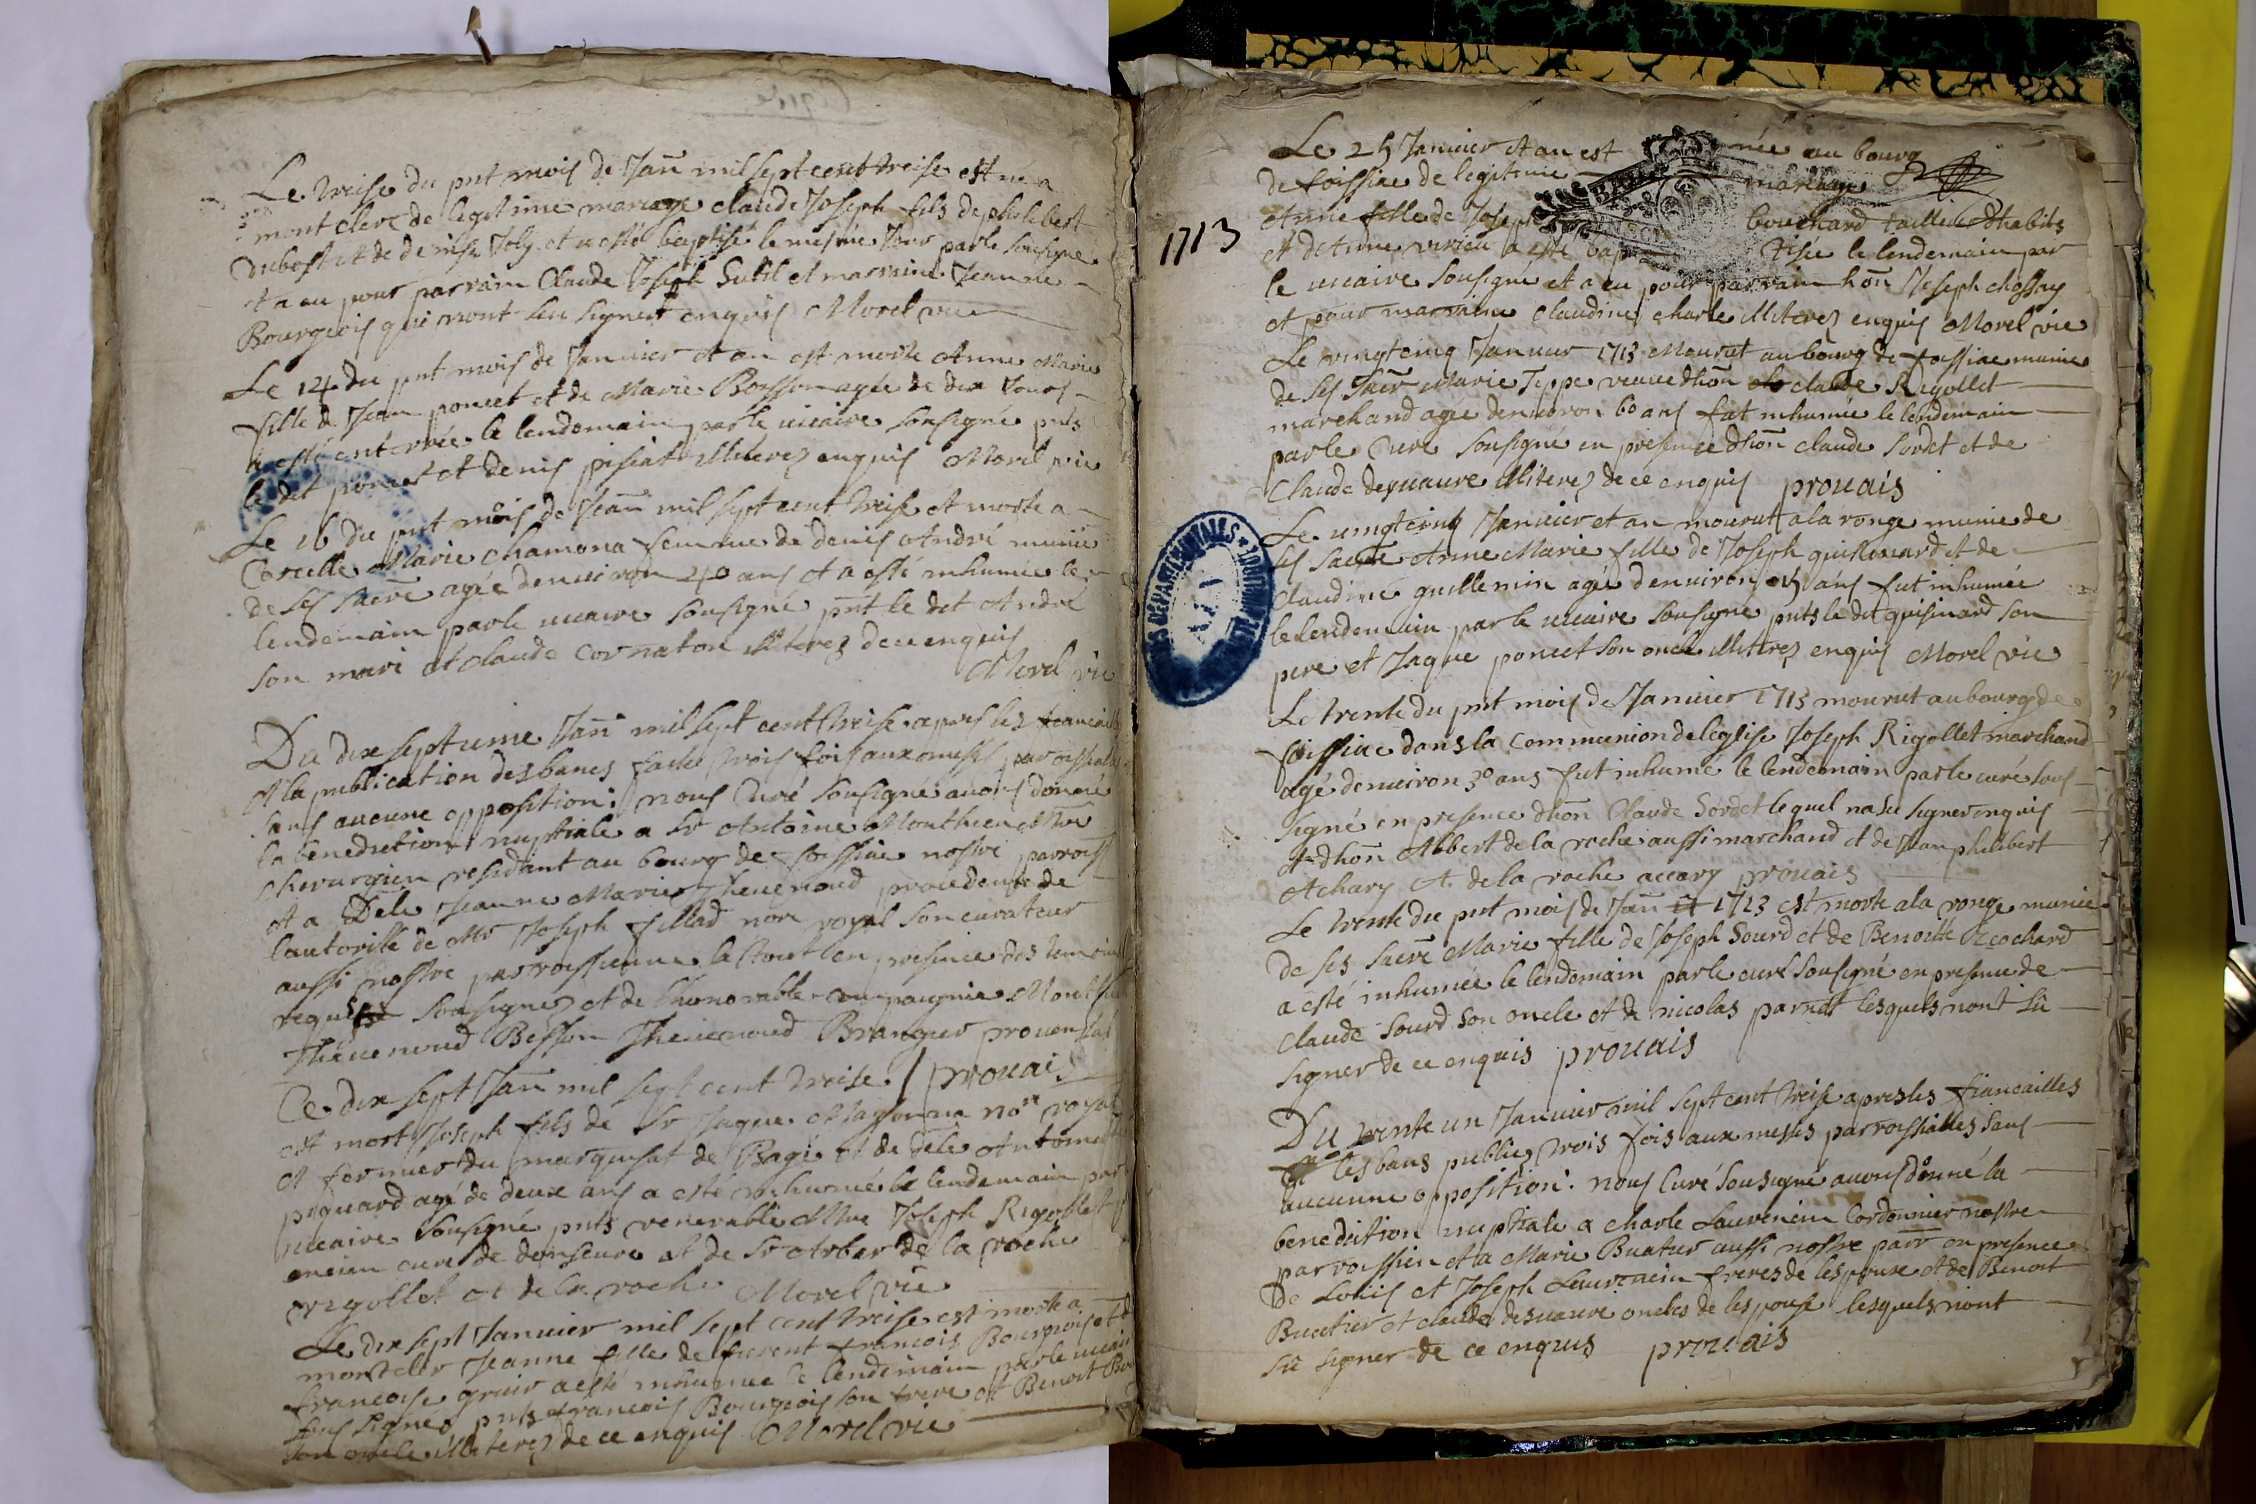 Le treise du pnt mois de Jan mil sept cent treise est ne a
mont clere de legitime mariage claude Joseph fils de philebert
Dubost et de denise Joly et a esté baptisé le mesme Jour par le sousigné
et a eu pour parrain Claude Joseph Subtil et marraine Jeanne
Bourgeois qui n'ont seu signer enquis Morel vic
Le 14 du pnt mois de Janvier et an est morte Anne Marie
fille de Jean poncet et de Marie Boisson agée de dix Jours
a esté enterrée le lendemain par le vicaire sousigné pnts
le dit poncet et denis pisiat illiterez enquis Morel vic
Le 16 du pnt mois de Jean mil sept cent treise et morte a
Corcelle Marie chamona femme de denis André munie
de ses sacre agée d'environ 40 ans et a esté inhumée le
lendemain par le vicaire sousigné pnt le dit André
son mari et claude cornaton illiterez de ce enquis
Morel vic
Du dix septieme Jan mil sept cent treise apres les fiancail
et la publication des bancs faite trois fois aux messes parroissial
sans aucune opposition: nous Curé sousigné avons donné
la benediction nuptiale a Sr Antoine Monthieu Mtre
chirurgien residant au bourg de foissiac nostre parroiss
et a Delle Jeanne Marie Thevenoud procedente de
l'autorité de Mr Joseph fillad nore royal son curateur
aussi nostre parroissienne le tout en presence des temoins
requis sousignez et de l'honorable compagnie Monthieu
Thevenoud Besson Thevenoud Brangier provensal
Ce dix sept Jan mil sept cent treise / prouais
est mort Joseph fils de Sr Jaque Massonna nore royal
et fermier du marquisat de Bagé et de delle Antoinette
piquard agé de deux ans a esté inhumé le lendemain par
vicaire sousigné pnts venerable Mre Joseph Rigollet
encien curé de domseure et de Sr Arber de la roche
rigollet et de la roche Morel vic
Le dix sept Janvier mil sept cent treise est morte a
montcler Jeanne fille de furent francois Bourgeois et
francoise gruir a esté inhumee le lendemain par le vicaire
sous signez pnts francois Bourgeois son frere et Benoit
son oncle illiterez de ce enquis Morel vic
1713
Le 25 Janvier et an est née au bourg
de foissiac de legitime mariage
Anne fille de Joseph bouchard tailleur d'habits
et d'Anne a esté bap tisée le lendemain par
le vicaire sousigné et a eu pour parrain hon Joseph chossas
et pour marraine claudine charle illiterez enquis Morel vic
Le vingt cinq Janvier 1713 Mourut au bourg de foissiac munie
de ses Sacr Marie Teppe veuve d'hon claude Rigollet
marchand agée denviron 60 ans fut inhumée le lendemain
par le Curé sousigné en presence d'hon claude sordet et de
Claude desvavre illiterez de ce enquis prouais
Le vingt cinq Janvier et an mourut a la ronge munie de
ses sacre Anne Marie fille de Joseph guisinard et de
claudine guillemin agée denviron ans fut inhumée
le lendemain par le vicaire sousigné pnts le dit guisinard son
pere et Jaque poncet son oncle illiterez enquis Morel vic
Le trente du pnt mois de Janvier 1713 mourut au bourg de
foissiac dans la communion de l'eglise Joseph Rigollet marchand
agé denviron 30 ans fut inhumé le lendemain par le curé sous
signé en presence d'hon Claude Sordet lequel na seu signer enquis
et d'hon Albert de la roche aussi marchand et de Jean philibert
Achary A. de la roche accary prouais
Le trente du pnt mois de Jan et 1713 est morte a la ronge munie
de ses Sacre Marie fille de Joseph Sourd et de Benoite Brochard
a esté inhumée le lendemain par le curé sousigné en presence de
claude Sourd son oncle et de nicolas parnet lesquels nont su
signer de ce enquis prouais
Du trente un Janvier mil sept cent treise apres les fiancailles
et les bans publiez trois fois aux messes parroissialles sans
aucunne opposition: nous Curé sousigné avons donné la
benediction nuptiale a charle Laurencin Cordonnier nostre
parroissien et a Marie Buatier aussi nostre parr en presence
de Louis et Joseph Laurencin freres de lespoux et de Benoit
Buatier et claude desvavre oncles de lespouse lesquels n'ont
su signer de ce enquis prouais
ARCHIVES DEPARTEMENTALES
AIN